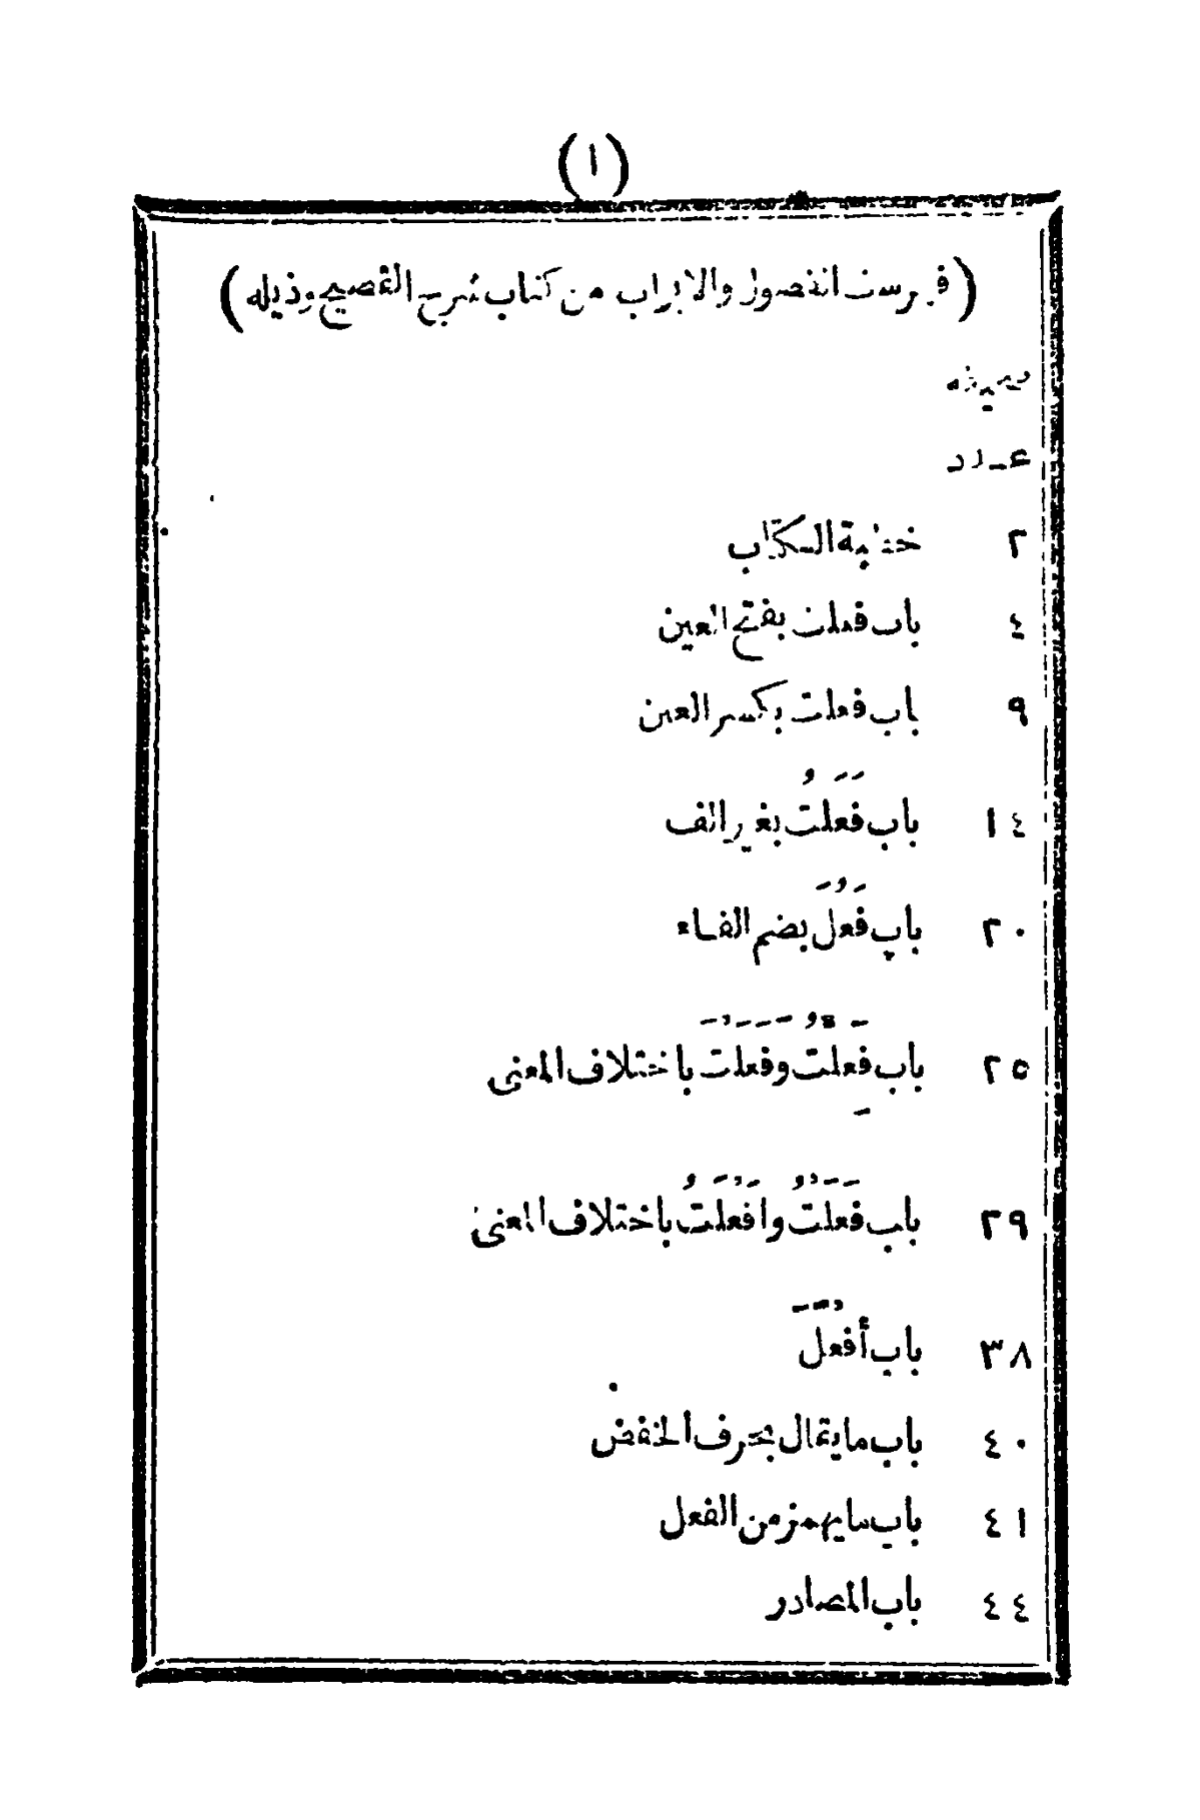 (١)
(فهرست الفصول والابواب من كتاب شرح الفصيح وذيله)
صحيفه
عدد
٢ خطبة الكتاب
٤ باب فعلت بفتح العين
٩ باب فعلت بكسر العين
١٤ باب فَعَلتُ بغير الف
٢٠ باب فُعِلَ بضم الفاء
٢٥ باب فَعِلتُ وفَعَلتُ باختلاف المعنى
٢٩ باب فَعَلْتُ وافْعَلْتُ باختلاف المعنى
٣٨ باب أفْعَلَ
٤٠ باب ما يقال بحرف الخفض
٤١ باب ما يهمز من الفعل
٤٤ باب المصادر